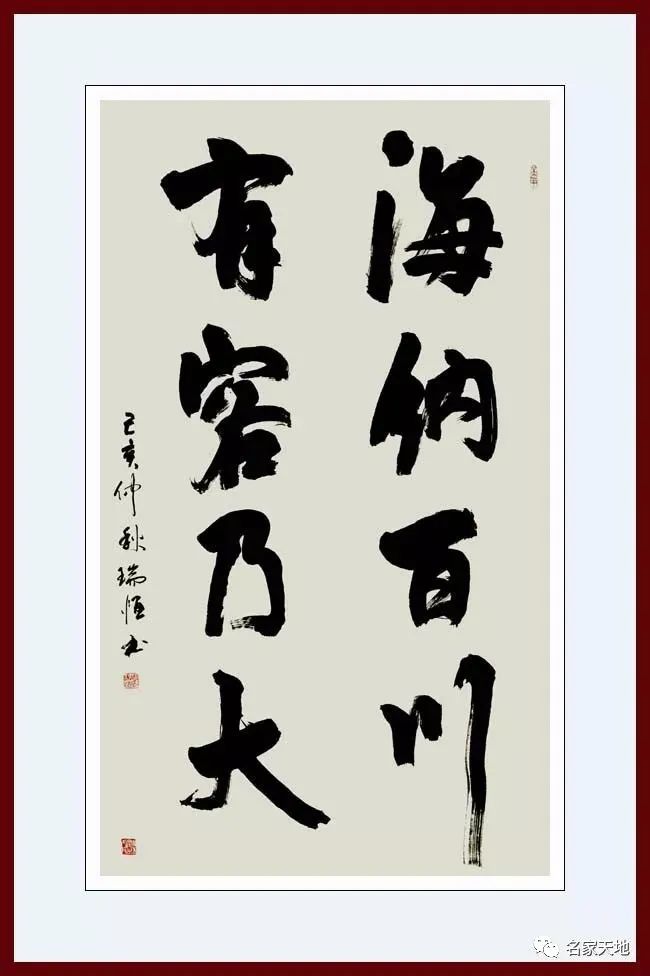 海纳百川
有容乃大
己亥仲秋瑞恒书
名家天地